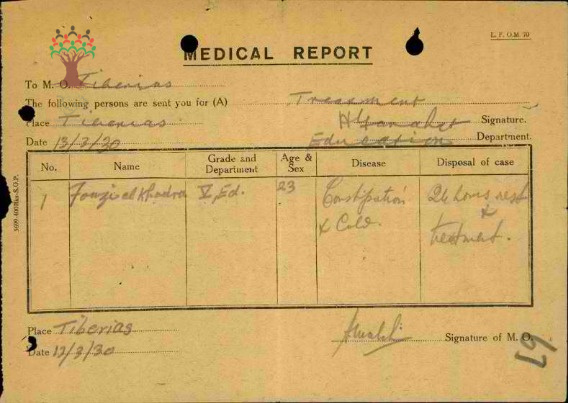 L. F. O.M 70
MEDICAL REPORT
To M. O. Tiberias
The following persons are sent you for (A) Treatment
Place Tiberias Signature.
Date 13/3/30 Education Department.
No. Name Grade and Department Age & Sex Disease Disposal of case
1 Fouzi al Khadra V Ed. 23 Constipation & Cold. 24 hours rest & treatment.
Place Tiberias Signature of M. O.
Date 13/3/30
67